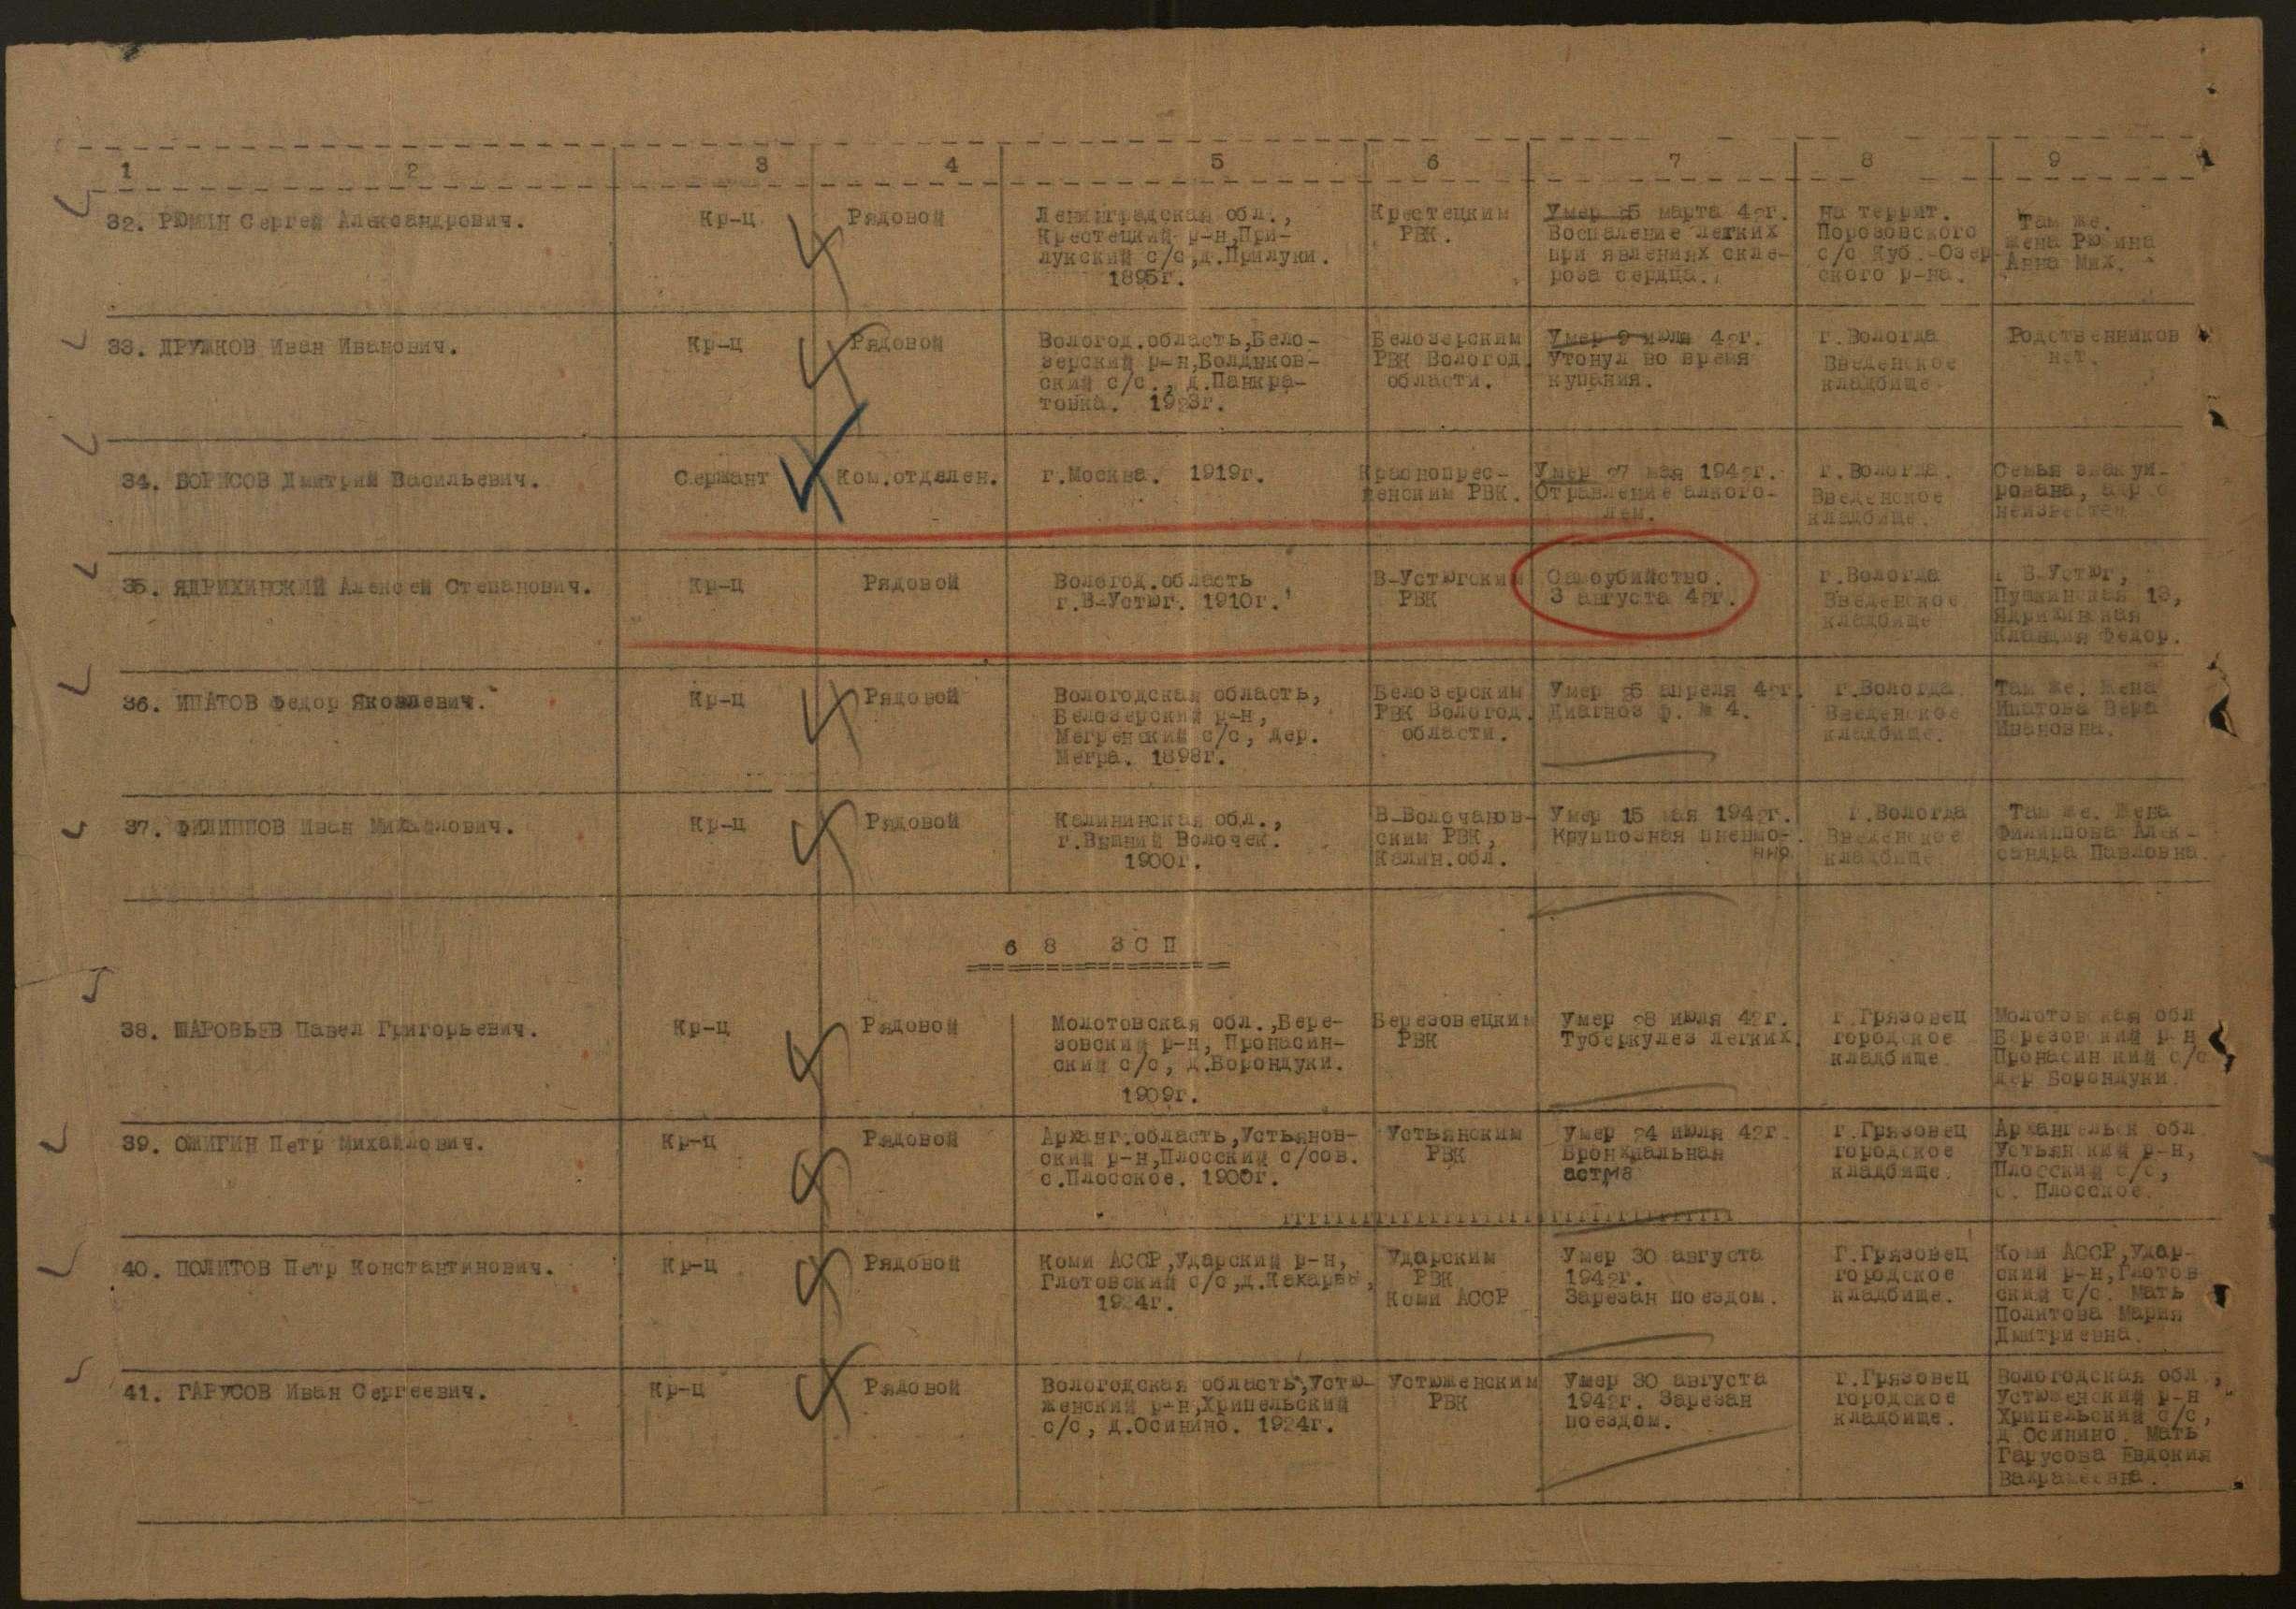 1 2 3 4 5 6 7 8 9
32. РЮМИН Сергей Александрович.
Кр-ц
Рядовой
Ленинградская обл.,
Крестецкий р-н,При-
лукский с/с,д.Прилуки.
1895г.
Крестецким
РВК.
Умер 25 марта 42г.
Воспаление легких
при явлениях скле-
роза сердца.
На террит.
Порозовского
с/с Куб.-Озер-
ского р-на.
Там же.
Жена Рюмина
Анна Мих.
33. ДРУЖКОВ Иван Иванович.
Кр-ц
Рядовой
Вологод.область,Бело-
зерский р-н,Болдыков-
ский с/с., д.Панкра-
товка. 1923г.
Белозерским
РВК Вологод.
области.
Умер 9 июля 42г.
Утонул во время
купания.
г.Вологда
Введенское
кладбище.
Родственников
нет.
34. БОРИСОВ Дмитрий Васильевич.
Сержант
Ком.отделен.
г.Москва. 1919г.
Краснопрес-
ненским РВК.
Умер 27 мая 1942г.
Отравление алкого-
лем.
г.Вологда.
Введенское
кладбище.
Семья эвакуи-
рована, адрес
неизвестен
35. ЯДРИХИНСКИЙ Алексей Степанович.
Кр-ц
Рядовой
Вологод.область
г.В-Устюг. 1910г.
В-Устюгским
РВК
Самоубийство.
3 августа 42г.
г.Вологда
Введенское
кладбище
г В-Устюг,
Пушкинская 13,
Ядрихинская
Клавдия Федор.
36. ИПАТОВ Федор Яковлевич.
Кр-ц
Рядовой
Вологодская область,
Белозерский р-н,
Мегренский с/с, дер.
Мегра. 1898г.
Белозерским
РВК Вологод.
области.
Умер 25 апреля 42г.
Диагноз ф. № 4.
г.Вологда
Введенское
кладбище.
Там же. Жена
Ипатова Вера
Ивановна.
37. ФИЛИППОВ Иван Михайлович.
Кр-ц
Рядовой
Калининская обл.,
г.Вышний Волочек.
1900г.
В-Волочанов-
ским РВК,
Калин.обл.
Умер 15 мая 1942г.
Круппозная пневмо-
ния
г.Вологда
Введенское
кладбище
Там же. Жена
Филиппова Алек-
сандра Павловна.
68 ЗСП
38. ШАРОВЬЕВ Павел Григорьевич.
Кр-ц
Рядовой
Молотовская обл.,Бере-
зовский р-н, Пронасин-
ский с/с, д.Борондуки.
1909г.
Березовецким
РВК
Умер 28 июля 42г.
Туберкулез легких.
г.Грязовец
городское
кладбище
Молотовская обл
Березовский р-н
Пронасинский с/с
дер Борондуки
39. ОЖИГИН Петр Михайлович.
Кр-ц
Рядовой
Арханг.область,Устьянов-
ский р-н,Плосский с/сов.
с.Плосское. 1900г.
Устьянским
РВК
Умер 24 июля 42г.
Бронхиальная
астма
г.Грязовец
городское
кладбище.
Архангельск обл
Устьянский р-н,
Плосский с/с,
с. Плосское.
40. ПОЛИТОВ Петр Константинович.
Кр-ц
Рядовой
Коми АССР,Ударский р-н,
Глотовский с/с,д.Макарыб,
1924г.
Ударским
РВК
Коми АССР
Умер 30 августа
1942г.
Зарезан поездом.
Г.Грязовец
городское
кладбище.
Коми АССР,Удар-
ский р-н,Глотов-
ский с/с. Мать
Политова Мария
Дмитриевна.
41. ГАРУСОВ Иван Сергеевич.
Кр-ц
Рядовой
Вологодская область,Устю-
женский р-н,Хрипельский
с/с, д.Осинино. 1924г.
Устюженским
РВК
Умер 30 августа
1942г. Зарезан
поездом.
г.Грязовец
городское
кладбище.
Вологодская обл.,
Устюженский р-н
Хрипельский с/с,
д Осинино. Мать
Гарусова Евдокия
Вахрамеевна.